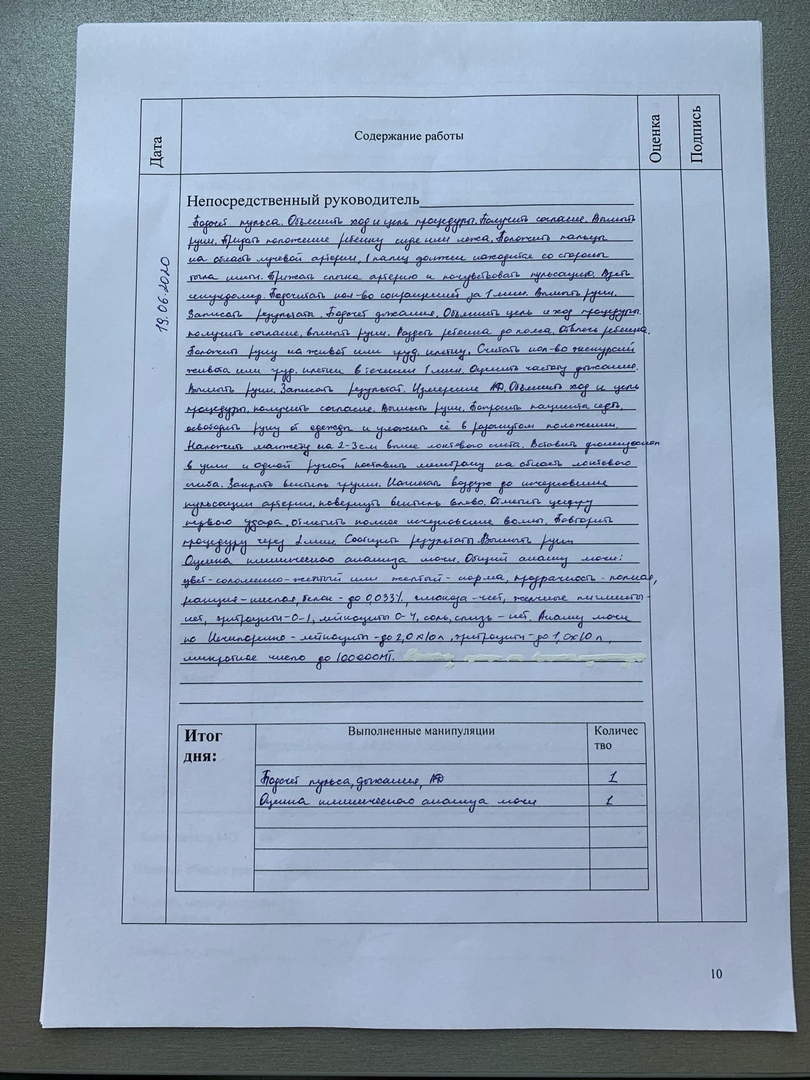 Дата
Содержание работы
Оценка
Подпись
Непосредственный руководитель
19.06.2020
Подсчёт пульса. Объяснить ход и цель процедуры. Получить согласие. Вымыть
руки. Придать положение ребенку сидя или лежа. Положить пальцы
на область лучевой артерии, 1 палец должен находится со стороны
тыла кисти. Прижать слегка артерию и почувствовать пульсацию. Взять
секундомер. Подсчитать кол-во сокращений за 1 мин. Вымыть руки.
Записать результаты. Подсчет дыхания. Объяснить цель и ход процедуры,
получить согласие, вымыть руки. Раздеть ребенка до пояса. Отвлечь ребенка.
Положить руку на живот или груд. клетку. Считать кол-во экскурсий
живота или груд. клетки в течении 1 мин. Оценить частоту дыхания.
Вымыть руки. Записать результат. Измерение АД. Объяснить ход и цель
процедуры, получить согласие. Вымыть руки. Попросить пациента сесть,
освободить руку от одежды и уложить её в разогнутом положении.
Наложить манжету на 2-3см выше локтевого сгиба. Вставить фонендоскоп
в уши и одной рукой поставить мембрану на область локтевого
сгиба. Закрыть вентиль груши. Нагнетать воздух до исчезновения
пульсации артерии, повернуть вентиль влево. Отметить цифру
первого удара. Отметить полное исчезновение волны. Повторить
процедуру через 2 мин. Сообщить результаты. Вымыть руки
Оценка клинического анализа мочи. Общий анализ мочи:
цвет-соломенно-желтый или желтый-норма, прозрачность-полная,
реакция-кислая, белок-до 0,033%, глюкоза-нет, желчные пигменты-
нет, эритроциты-0-1, лейкоциты 0-4, соль, слизь-нет. Анализ мочи
по Нечипоренко-лейкоциты-до 2,0х10л, эритроциты-до 1,0х10л,
микробное число до 100000МТ.
Итог
дня:
Выполненные манипуляции
Количес
тво
Подсчет пульса, дыхания, АД
1
Оценка клинического анализа мочи
1
10